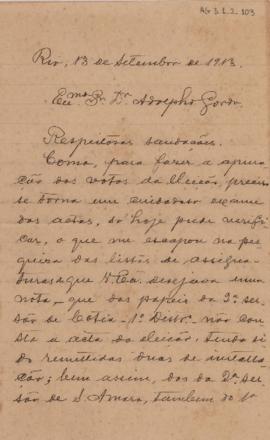 AG 3.1.2.103
Rio, 13 de Setembro de 1913.
Exmo. Sr. Dr. Adolpho Gordo.
Respeitosas saudações.
Como, para fazer a apura-
ção dos votos da eleição, preciso
se torna um cuidadoso exame
das actas, só hoje pude verifi-
car, o que me escapou na pes-
quiza das listas de assigna-
turas de que V. Exa. desejava uma
nota, — que dos papeis da 3ª sec-
são de Cotia — 1º Distr. — não cons-
ta a acta da eleição, tendo si-
do remettidas duas de installa-
ção; bem assim, dos da 2ª sec-
são de S. Amaro, tambem do 1º